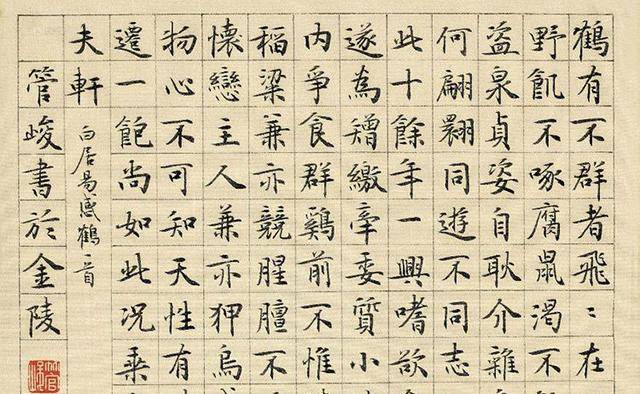 鶴有不群者飛〻在
野飢不啄腐鼠渴不
盜泉貞姿自耿介雜
何翩翾同遊不同志
此十餘年一興嗜欲
遂為矰繳牽委質小
内爭食群鷄前不惟
稻粱兼亦競腥膻不
懷戀主人兼亦狎烏
物心不可知天性有
遷一飽尚如此況乘
夫軒
白居易感鶴一首
管峻書於金陵
管峻